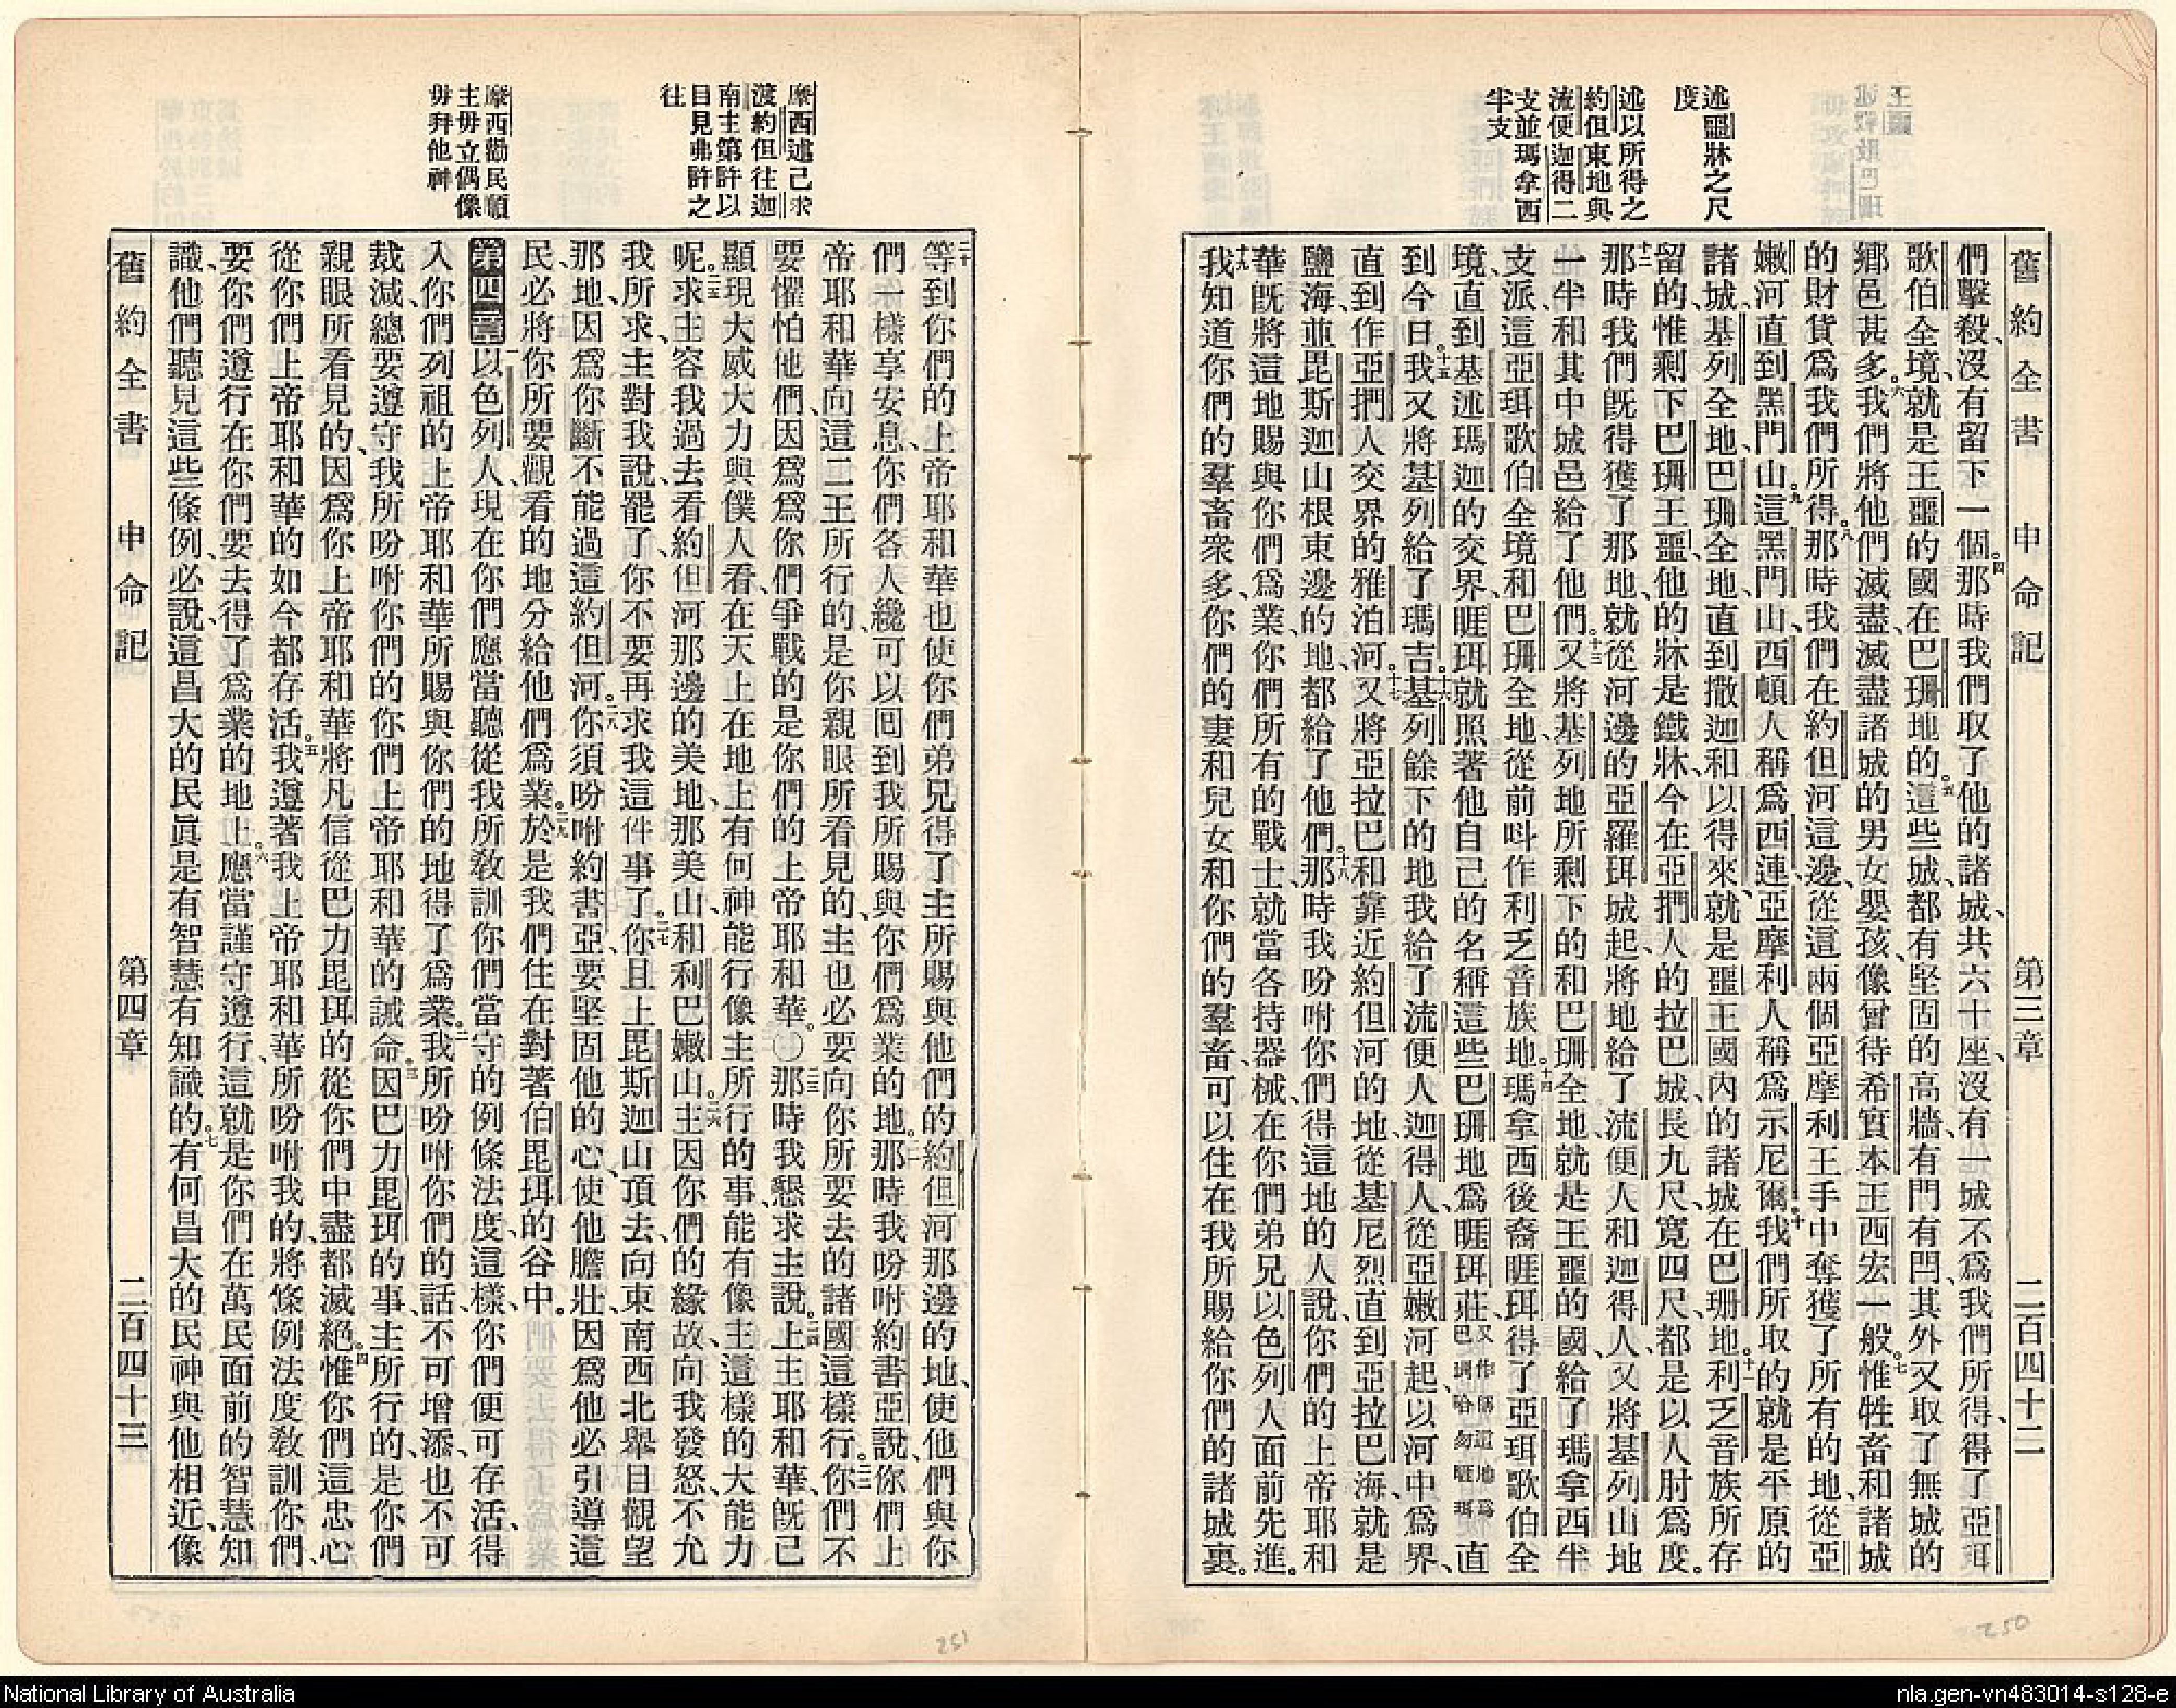 舊約全書 申命記 第三章 二百四十二
述噩牀之尺
度
述以所得之
約但東地與
流便迦得二
支並瑪拿西
半支
們擊殺、沒有留下一個。四那時我們取了他的諸城、共六十座、沒有一城不爲我們所得、得了亞珥
歌伯全境、就是王噩的國在巴珊地的。五這些城、都有堅固的高牆、有門有閂、其外又取了無城的
鄉邑甚多。六我們將他們滅盡、滅盡諸城的男女嬰孩、像曾待希實本王西宏一般。七惟牲畜和諸城
的財貨爲我們所得。八那時我們在約但河這邊、從這兩個亞摩利王手中奪獲了所有的地、從亞
嫩河直到黑門山。九這黑門山、西頓人稱爲西連、亞摩利人稱爲示尼爾。十我們所取的就是平原的
諸城、基列全地、巴珊全地、直到撒迦和以得來、就是噩王國內的諸城在巴珊地。十一利乏音族所存
留的、惟剩下巴珊王噩、他的牀是鐵牀、今在亞捫人的拉巴城、長九尺、寬四尺、都是以人肘爲度。
十二那時我們旣得獲了那地、就從河邊的亞羅珥城起、將地給了流便人和迦得人、又將基列山地
一半和其中城邑給了他們。十三又將基列地所剩下的和巴珊全地、就是王噩的國、給了瑪拿西半
支派、這亞珥歌伯全境和巴珊全地、從前呌作利乏音族地。十四瑪拿西後裔睚珥得了亞珥歌伯全
境、直到基述瑪迦的交界、睚珥就照著他自己的名稱這些巴珊地爲睚珥莊、又作稱這地爲巴珊哈勿睚珥直
到今日。十五我又將基列給了瑪吉。十六基列餘下的地我給了流便人、迦得人、從亞嫩河起、以河中爲界、
直到作亞捫人交界的雅泊河。十七又將亞拉巴和靠近約但河的地、從基尼烈直到亞拉巴海、就是
鹽海、並毘斯迦山根東邊的地、都給了他們。十八那時我吩咐你們得這地的人說、你們的上帝耶和
華旣將這地賜與你們爲業、你們所有的戰士、就當各持器械、在你們弟兄以色列人面前先進。
十九我知道你們的羣畜衆多、你們的妻和兒女和你們的羣畜、可以住在我所賜給你們的諸城裏。
250
摩西述己求
渡約但往迦
南主第許以
目見弗許之
往
摩西勸民順
主毋立偶像
毋拜他神
二十等到你們的上帝耶和華也使你們弟兄得了主所賜與他們的約但河那邊的地、使他們與你
們一樣享安息、你們各人纔可以囘到我所賜與你們爲業的地。二一那時我吩咐約書亞說、你們上
帝耶和華向這二王所行的、是你親眼所看見的、主也必要向你所要去的諸國這樣行。二二你們不
要懼怕他們、因爲爲你們爭戰的是你們的上帝耶和華。〇二三那時我懇求主說。二四上主耶和華、旣已
顯現大威大力與僕人看、在天上在地上有何神能行像主所行的事、能有像主這樣的大能力
呢。二五求主容我過去看約但河那邊的美地、那美山、和利巴嫩山。二六主因你們的緣故、向我發怒、不允
我所求、主對我說、罷了、你不要再求我這件事了。二七你且上毘斯迦山頂去、向東南西北舉目觀望
那地、因爲你斷不能過這約但河。二八你須吩咐約書亞、要堅固他的心、使他膽壯、因爲他必引導這
民、必將你所要觀看的地分給他們爲業。二九於是我們住在對著伯毘珥的谷中。
第四章一以色列人、現在你們應當聽從我所敎訓你們當守的例條法度、這樣、你們便可存活、得
入你們列祖的上帝耶和華所賜與你們的地得了爲業。二我所吩咐你們的話、不可增添、也不可
裁減、總要遵守我所吩咐你們的你們上帝耶和華的誡命。三因巴力毘珥的事、主所行的、是你們
親眼所看見的、因爲你上帝耶和華將凡信從巴力毘珥的從你們中盡都滅絕。四惟你們這忠心
從你們上帝耶和華的如今都存活。五我遵著我上帝耶和華所吩咐我的、將條例法度敎訓你們、
要你們遵行在你們要去得了爲業的地上。六應當謹守遵行、這就是你們在萬民面前的智慧知
識、他們聽見這些條例、必說、這昌大的民眞是有智慧有知識的。七有何昌大的民神與他相近、像
舊約全書 申命記 第四章 二百四十三
251
National Library of Australia
nla.gen-vn483014-s128-e